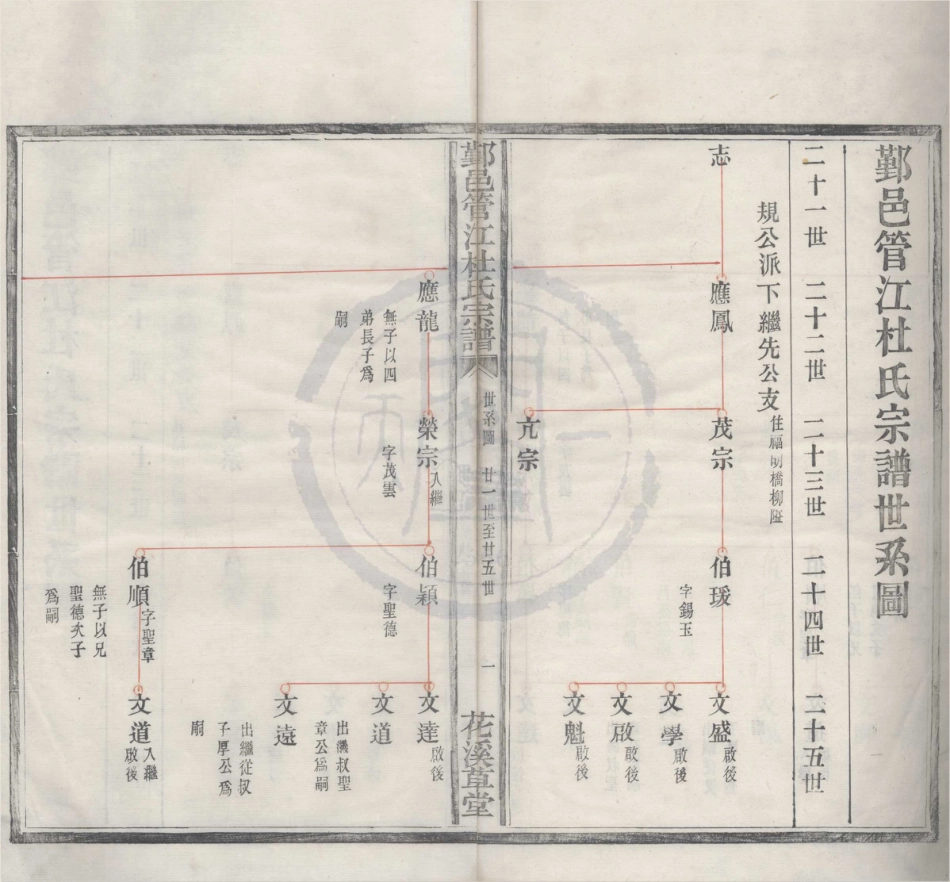 鄞邑管江杜氏宗譜世系圖
二十一世 二十二世 二十三世 二十四世 二十五世
規公派下繼先公支 住福明橋柳隘
志
應鳳
茂宗
伯瑗
字錫玉
文盛 啟後
文學 啟後
文啟 啟後
文魁 啟後
亢宗
鄞邑管江杜氏宗譜
世系圖 廿一世至廿五世
一
花溪草堂
應龍
無子以四
弟長子為
嗣
榮宗 入繼
字茂雲
伯穎
字聖德
文達 啟後
文道
出繼叔聖
章公為嗣
文遠
出繼從叔
子厚公為
嗣
伯順 字聖章
無子以兄
聖德次子
為嗣
文道 入繼
啟後